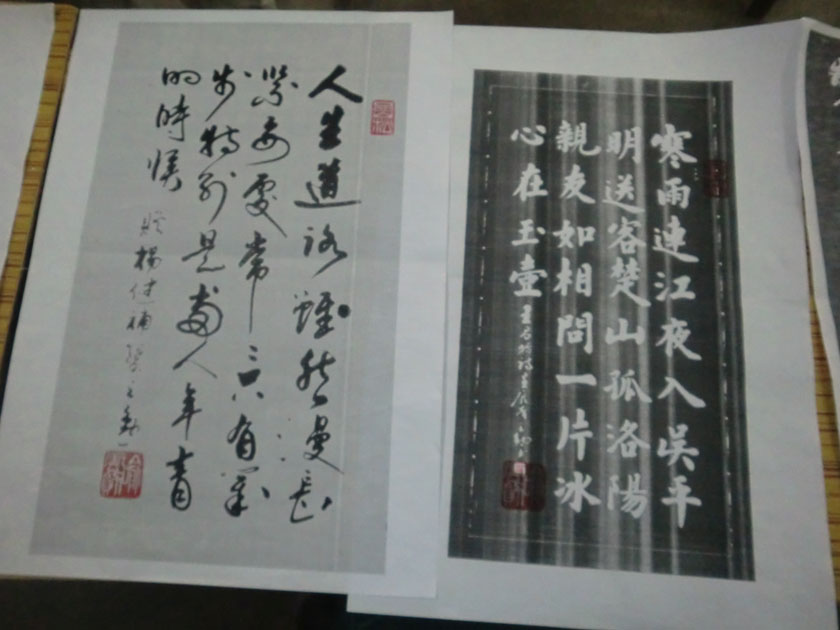 人生道路雖然漫長
緊要處常〻只有幾
步特别是當人年青
的時候
寒雨連江夜入吳平
明送客楚山孤洛陽
親友如相問一片冰
心在玉壺